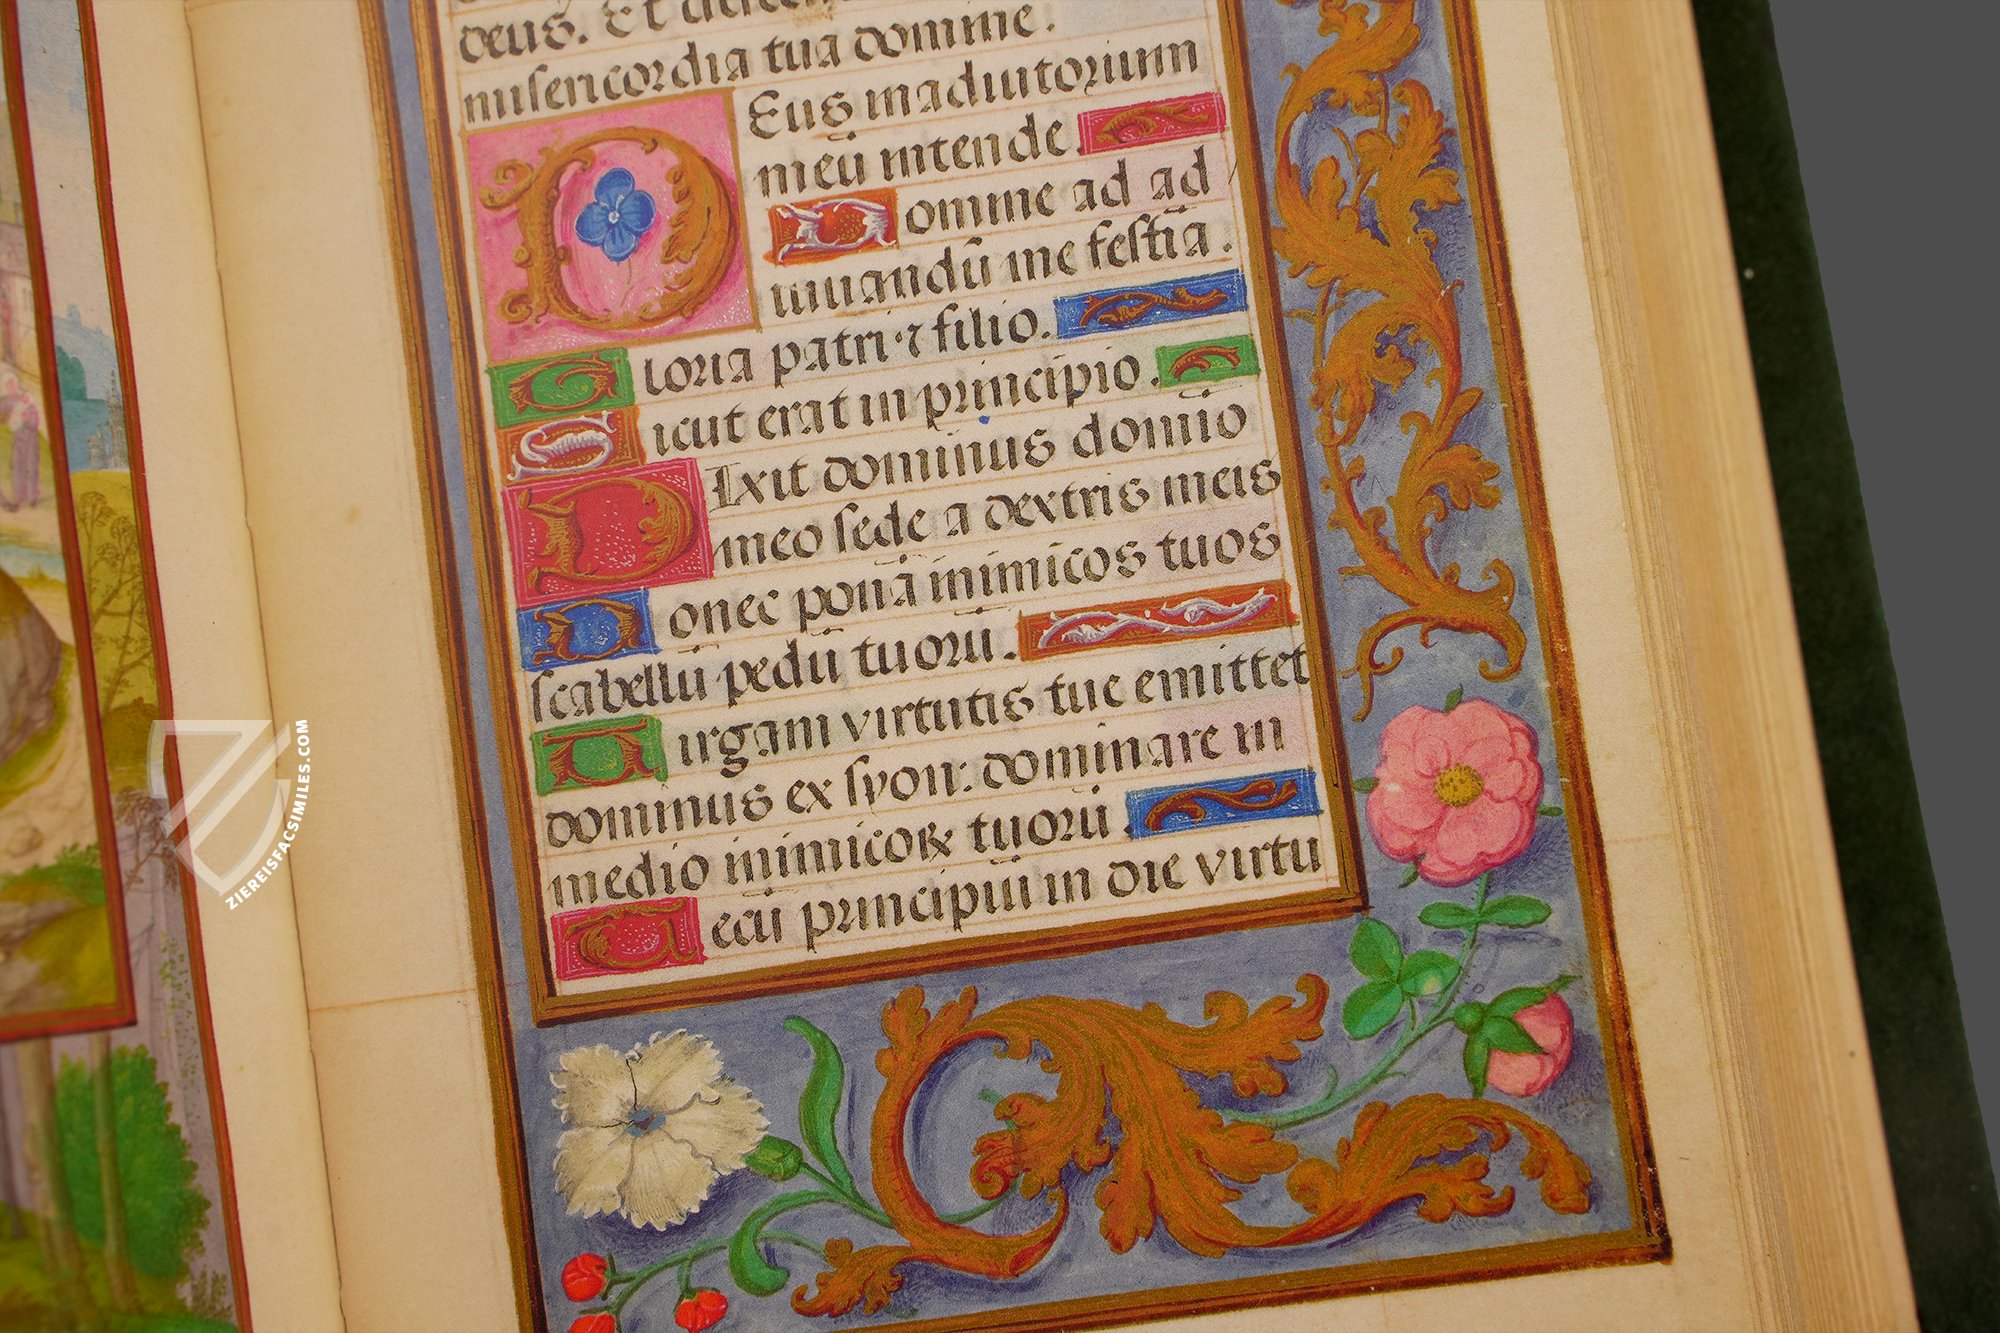 deus. Et
misericordia tua domine.
DEus in adiutorium
meū intende.
Domine ad ad
iuuandū me festīa.
Gloria patri ⁊ filio.
Sicut erat in principio.
DIxit dominus domīo
meo sede a dextris meis
Donec ponā inimicos tuos
scabellū pedū tuorū.
Uirgam virtutis tue emittet
dominus ex syon: dominare in
medio inimicoꝝ tuorū.
Tecū principiū in die virtu
ZIEREISFACSIMILES.COM